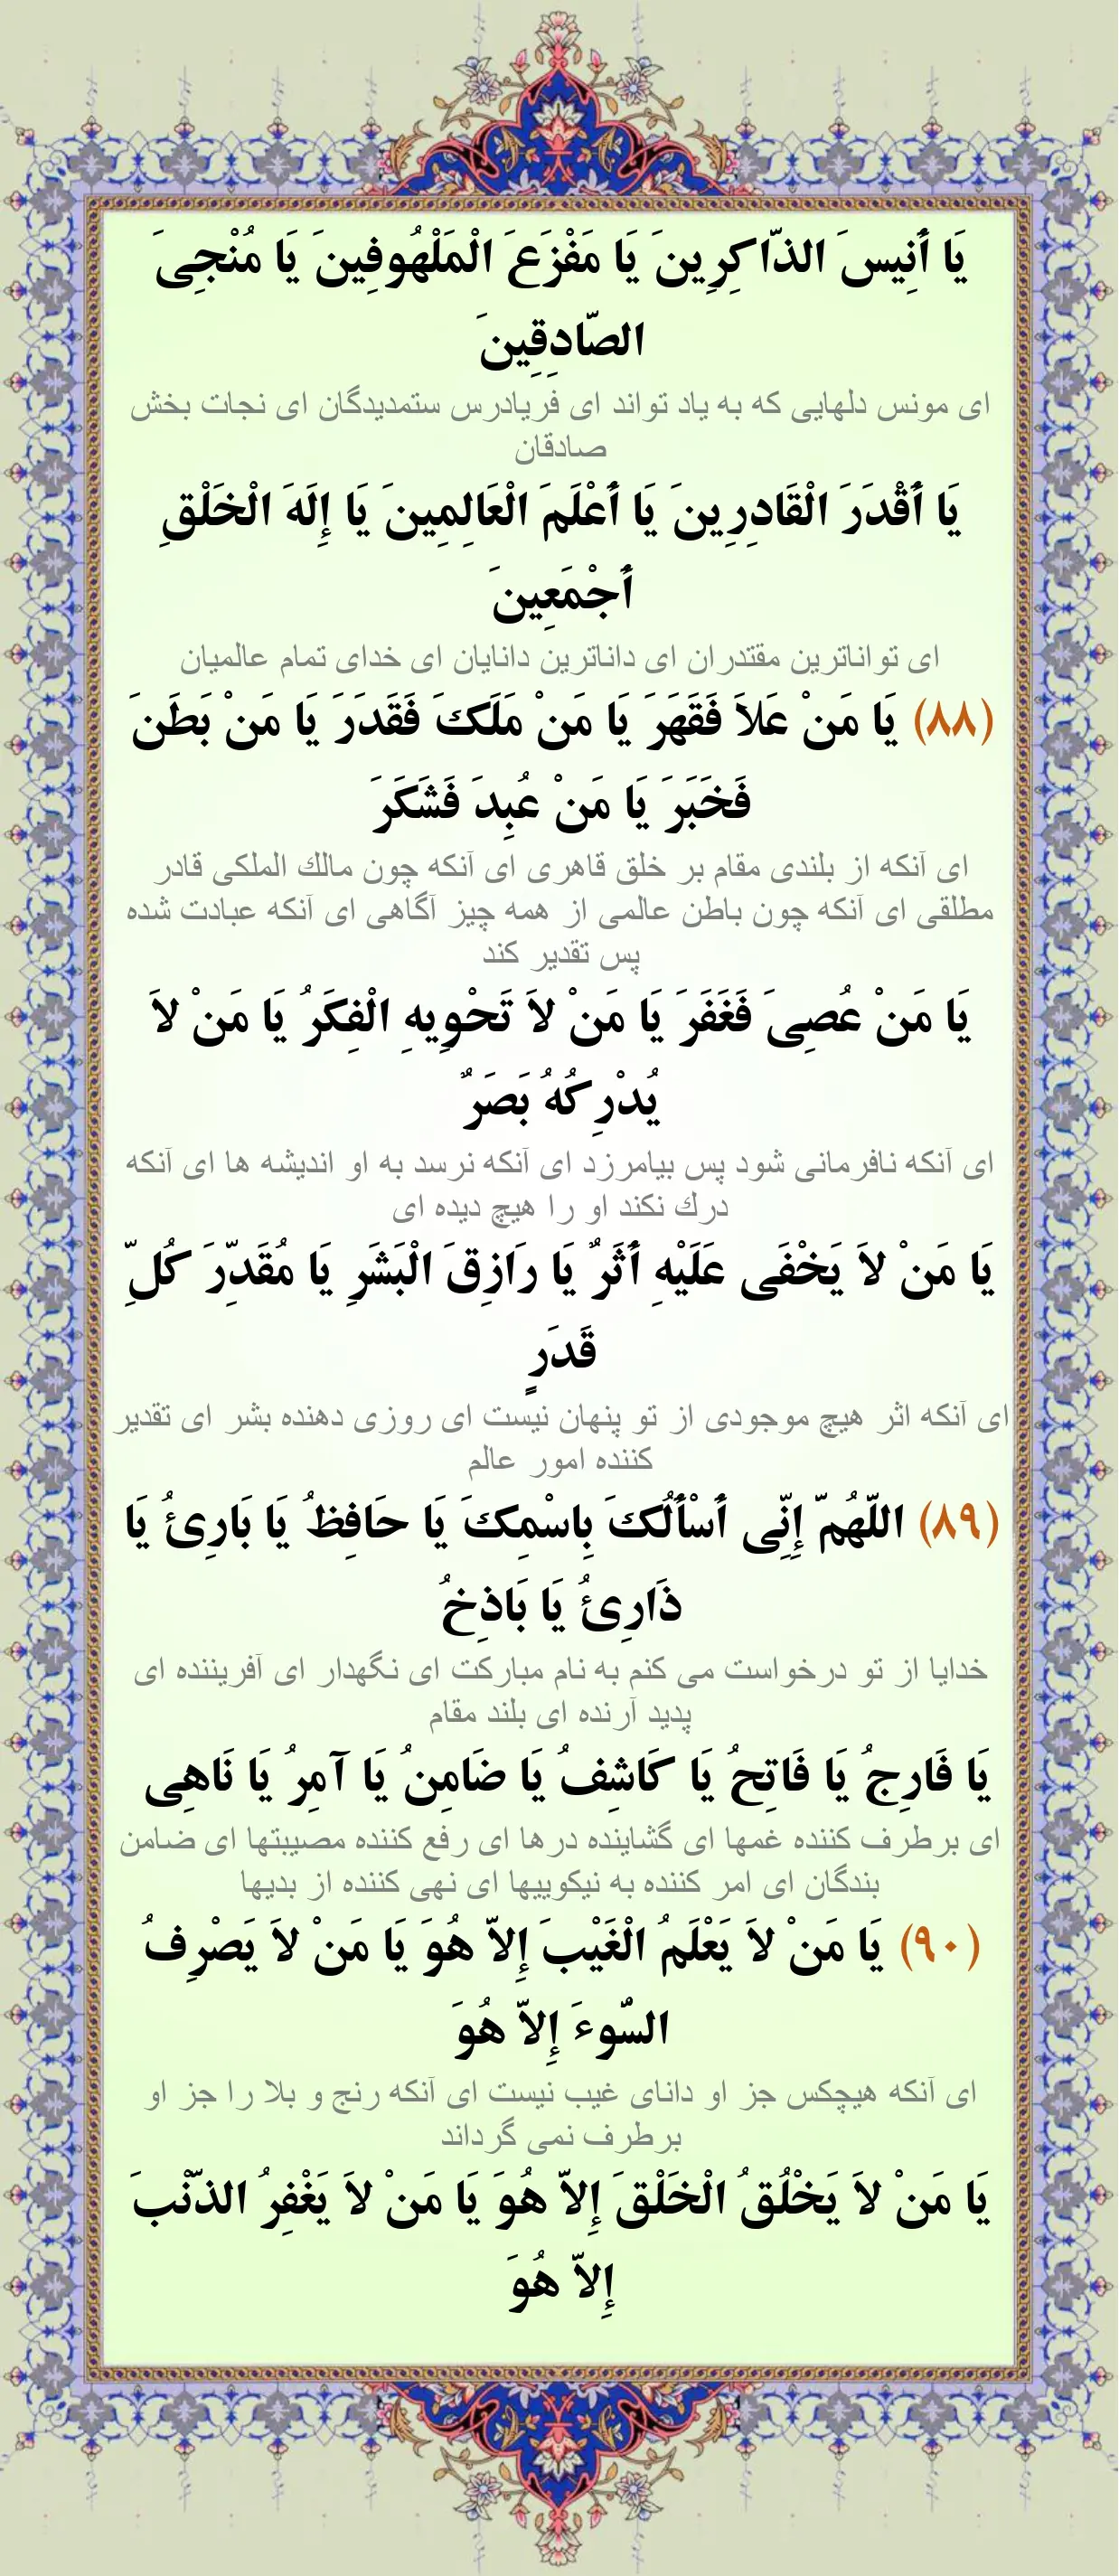 يَا أَنِيسَ الذّاكِرِينَ يَا مَفْزَعَ الْمَلْهُوفِينَ يَا مُنْجِىَ
الصّادِقِينَ
اى مونس دلهايى كه به ياد تواند اى فريادرس ستمديدگان اى نجات بخش
صادقان
يَا أَقْدَرَ الْقَادِرِينَ يَا أَعْلَمَ الْعَالِمِينَ يَا إِلَهَ الْخَلْقِ
أَجْمَعِينَ
اى تواناترين مقتدران اى داناترين دانايان اى خداى تمام عالميان
(٨٨) يَا مَنْ عَلاَ فَقَهَرَ يَا مَنْ مَلَكَ فَقَدَرَ يَا مَنْ بَطَنَ
فَخَبَرَ يَا مَنْ عُبِدَ فَشَكَرَ
اى آنكه از بلندى مقام بر خلق قاهرى اى آنكه چون مالك الملكى قادر
مطلقى اى آنكه چون باطن عالمى از همه چيز آگاهى اى آنكه عبادت شده
پس تقدير كند
يَا مَنْ عُصِىَ فَغَفَرَ يَا مَنْ لاَ تَحْوِيهِ الْفِكَرُ يَا مَنْ لاَ
يُدْرِكُهُ بَصَرٌ
اى آنكه نافرمانى شود پس بيامرزد اى آنكه نرسد به او انديشه ها اى آنكه
درك نكند او را هيچ ديده اى
يَا مَنْ لاَ يَخْفَى عَلَيْهِ أَثَرٌ يَا رَازِقَ الْبَشَرِ يَا مُقَدِّرَ كُلِّ
قَدَرٍ
اى آنكه اثر هيچ موجودى از تو پنهان نيست اى روزى دهنده بشر اى تقدير
كننده امور عالم
(٨٩) اللّهُمّ إِنِّى أَسْأَلُكَ بِاسْمِكَ يَا حَافِظُ يَا بَارِئُ يَا
ذَارِئُ يَا بَاذِخُ
خدايا از تو درخواست مى كنم به نام مباركت اى نگهدار اى آفريننده اى
پديد آرنده اى بلند مقام
يَا فَارِجُ يَا فَاتِحُ يَا كَاشِفُ يَا ضَامِنُ يَا آمِرُ يَا نَاهِى
اى برطرف كننده غمها اى گشاينده درها اى رفع كننده مصيبتها اى ضامن
بندگان اى امر كننده به نيكوييها اى نهى كننده از بديها
(٩٠) يَا مَنْ لاَ يَعْلَمُ الْغَيْبَ إِلاّ هُوَ يَا مَنْ لاَ يَصْرِفُ
السُّوءَ إِلاّ هُوَ
اى آنكه هيچكس جز او داناى غيب نيست اى آنكه رنج و بلا را جز او
برطرف نمى گرداند
يَا مَنْ لاَ يَخْلُقُ الْخَلْقَ إِلاّ هُوَ يَا مَنْ لاَ يَغْفِرُ الذّنْبَ
إِلاّ هُوَ